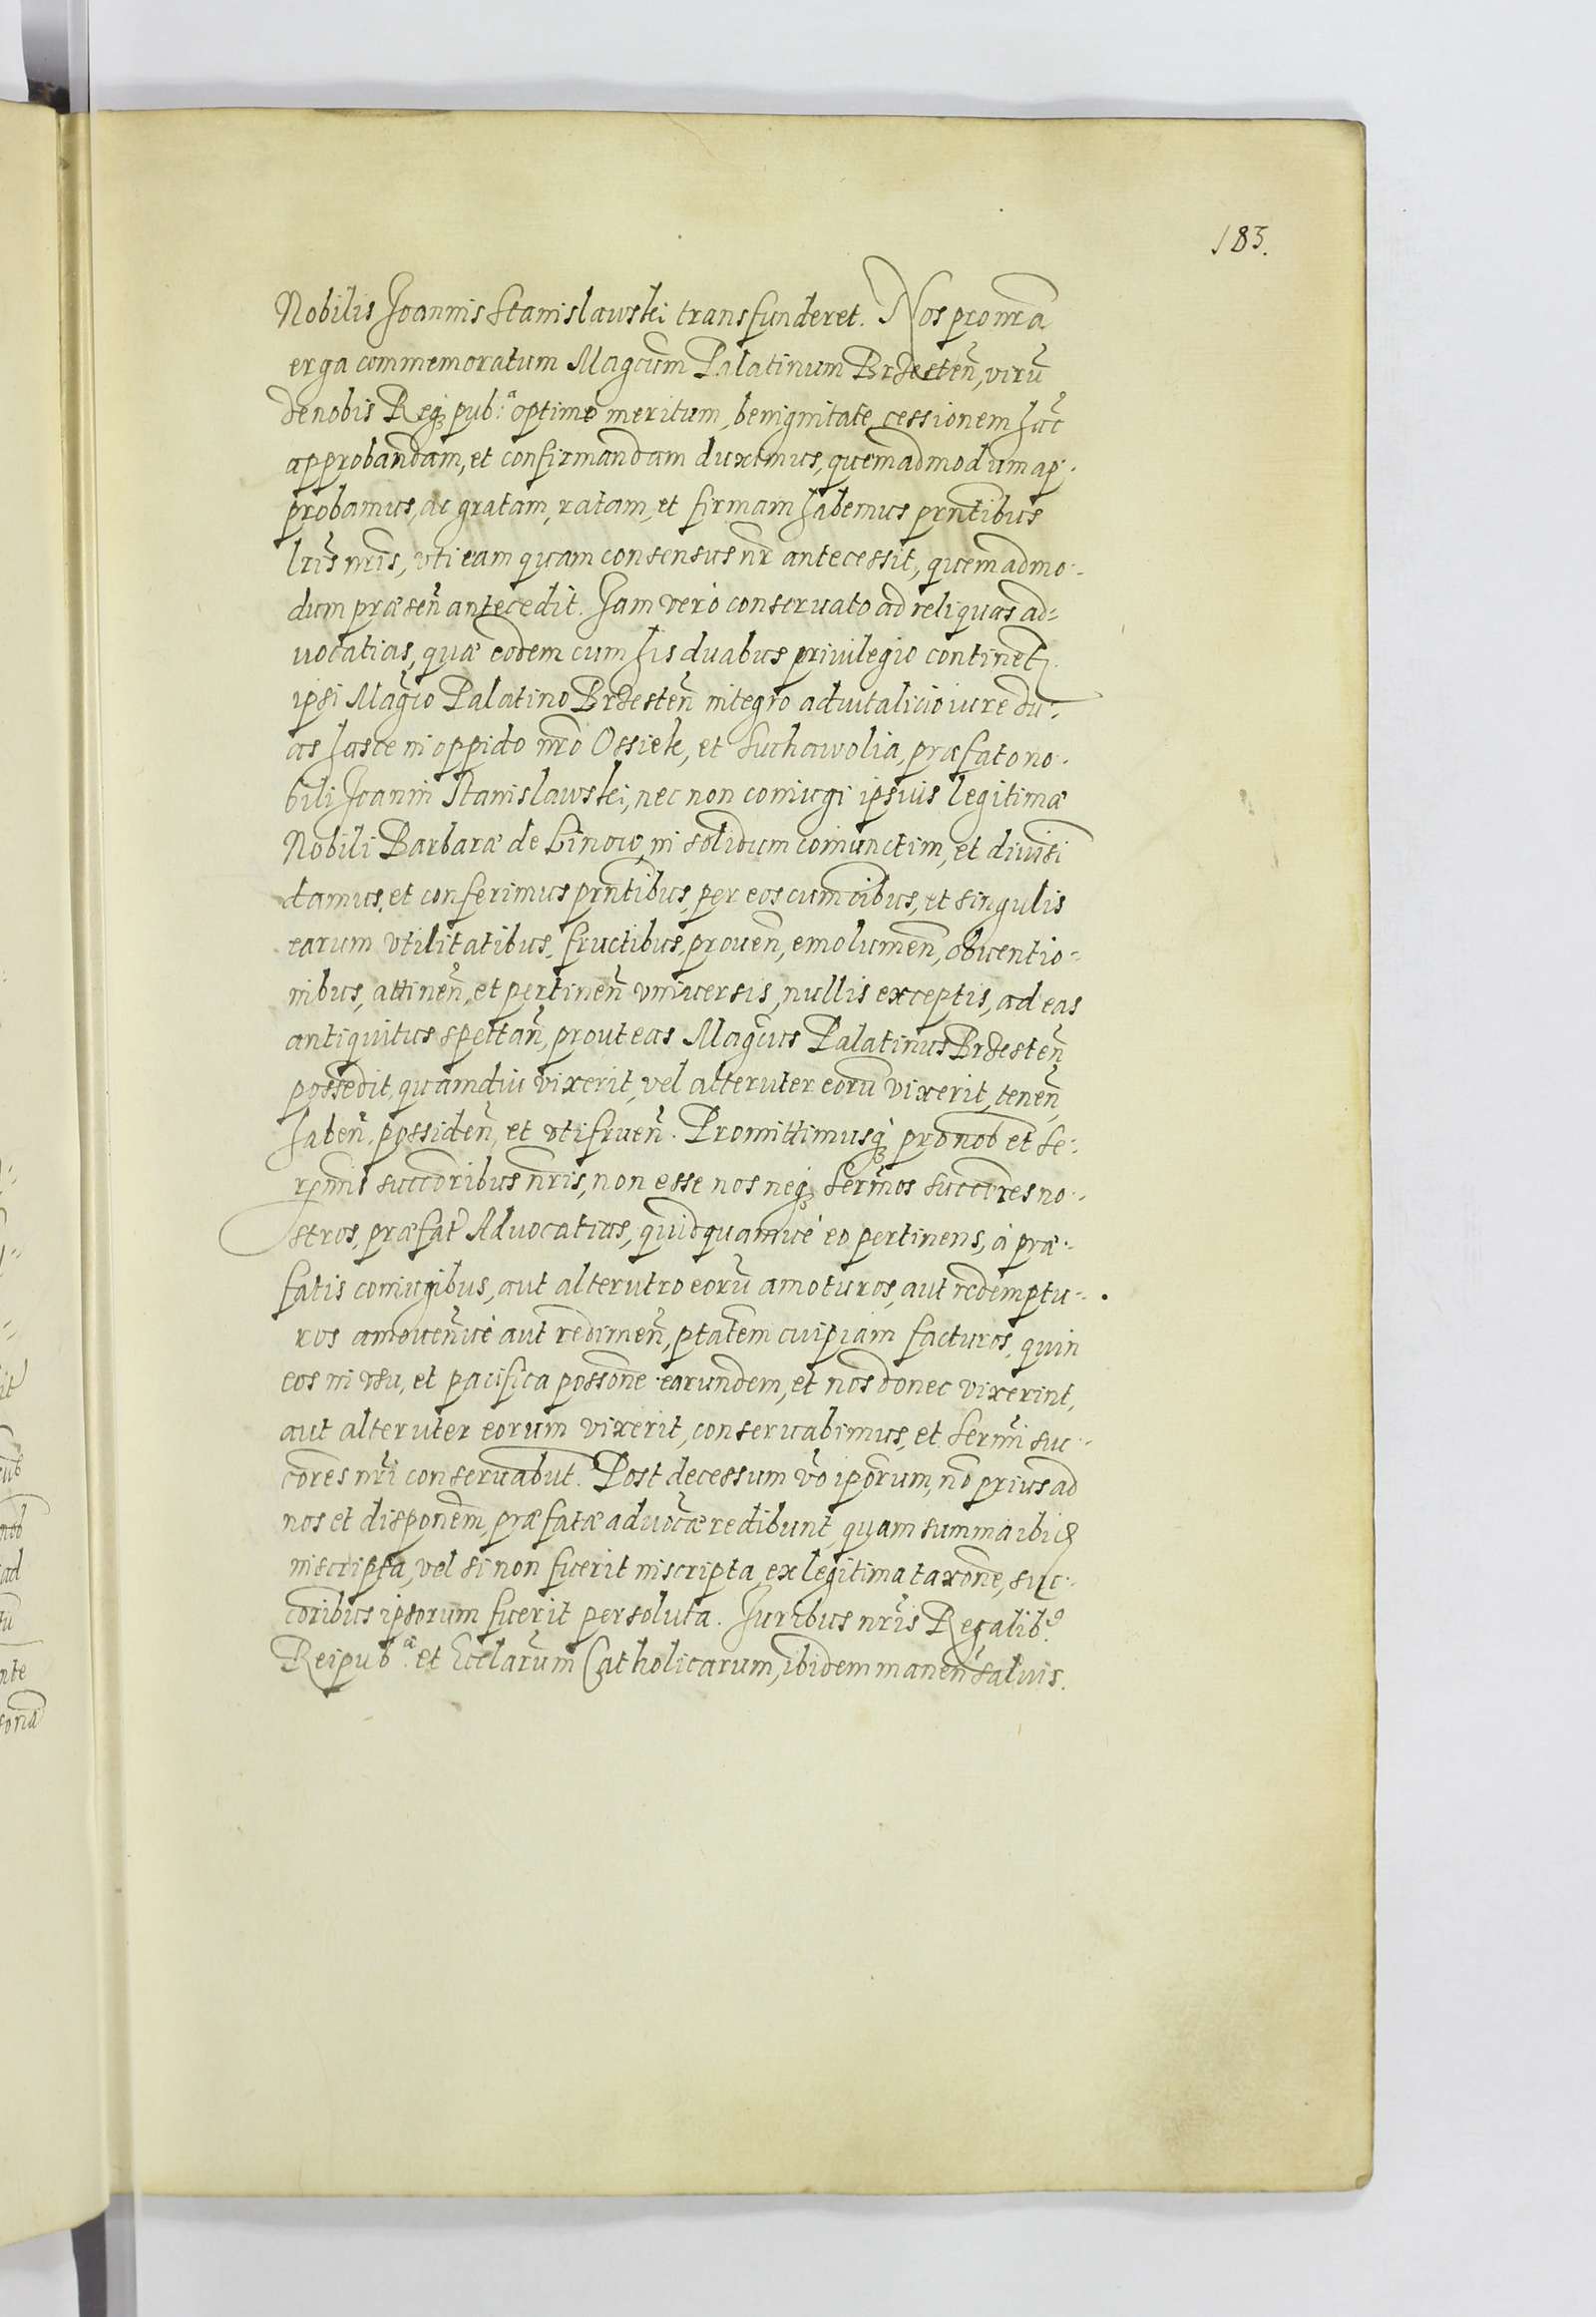 183.
Nobilis Joannis Stanislawski transfunderet. Nos pro nr̃a
erga commemoratum Magcũm Palatinum Brzesteñ, virũ
de nobis Reiq; pub:ᵃ optime meritum, benignitate cessionem hãc
approbandam, et confirmandam duximus, quemadmodum ap-
probamus, ac gratam, ratam, et firmam habemus prñtibus
lrĩs nrĩs, vti eam quam consensus nr̃ antecessit, quemadmo-
dum præseñ antecedit. Jam verò conseruato ad reliquas ad-
uocatias, quæ eodem cum his duabus priuilegio continẽt,
ipsi Magcõ Palatino Brzesteñ integro aduitalicio iure du-
as hasce in oppido nrõ Ossiek, et Suchawolia, præfato no-
bili Joanni Stanislawski, nec non coniugi ipsius legitimæ
Nobili Barbaræ de Linow, in solidum coniunctim, et diuisĩ
damus, et conferimus prñtibus, per eos cum oĩbus, et singulis
earum vtilitatibus, fructibus, proueñ, emolumeñ, obuentio-
nibus, attineñ, et pertineñ vniuersis, nullis exceptis, ad eas
antiquitus spectañ, prout eas Magcũs Palatinus Brzesteñ
possedit, quamdiu vixerit, vel alteruter eorũ vixerit, teneñ,
habeñ, possideñ, et vtifrueñ. Promittimusq; pro nob̃ et Se-
renmĩs succõribus nrĩs, non esse nos neq; Sermõs succõres no-
stros, præfat̃ Aduocatias, quidquamue eo pertinens, à præ-
fatis coniugibus, aut alterutro eorũ amoturos, aut redemptu-
ros amoueñue aut redimeñ, ptãtem cuipiam facturos, quin
eos in vsu, et pacifica possõne earundem, et nos donec vixerint,
aut alteruter eorum vixerit, conseruabimus, et Sermĩ suc-
cõres nrĩ conseruabũt. Post decessum võ ipõrum, nõ prius ad
nos et dispõnem, præfatæ aduocãæ redibunt, quam summa ibid
inscripta, vel si non fuerit inscripta, ex legitima taxõne, suc-
cõribus ipsorum fuerit persoluta. Juribus nrĩs Regalib⁹
Reipub:ᵃ et Ecclãrum Catholicarum, ibidem maneñ saluis.